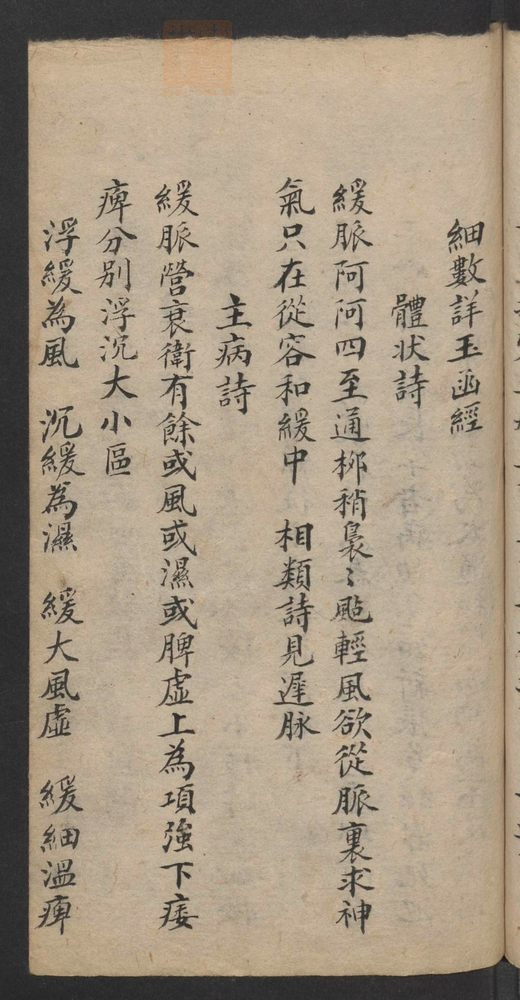 細數詳玉函經
體状詩
緩脈阿阿四至通栁稍裊〻颭輕風欲從脈裏求神
氣只在從容和緩中 相類詩見遲脉
主病詩
緩脈營衰衛有餘或風或濕或脾虛上為項強下痿
痺分別浮沉大小區
浮緩為風 沉緩為濕 緩大風虛 緩細溫痺